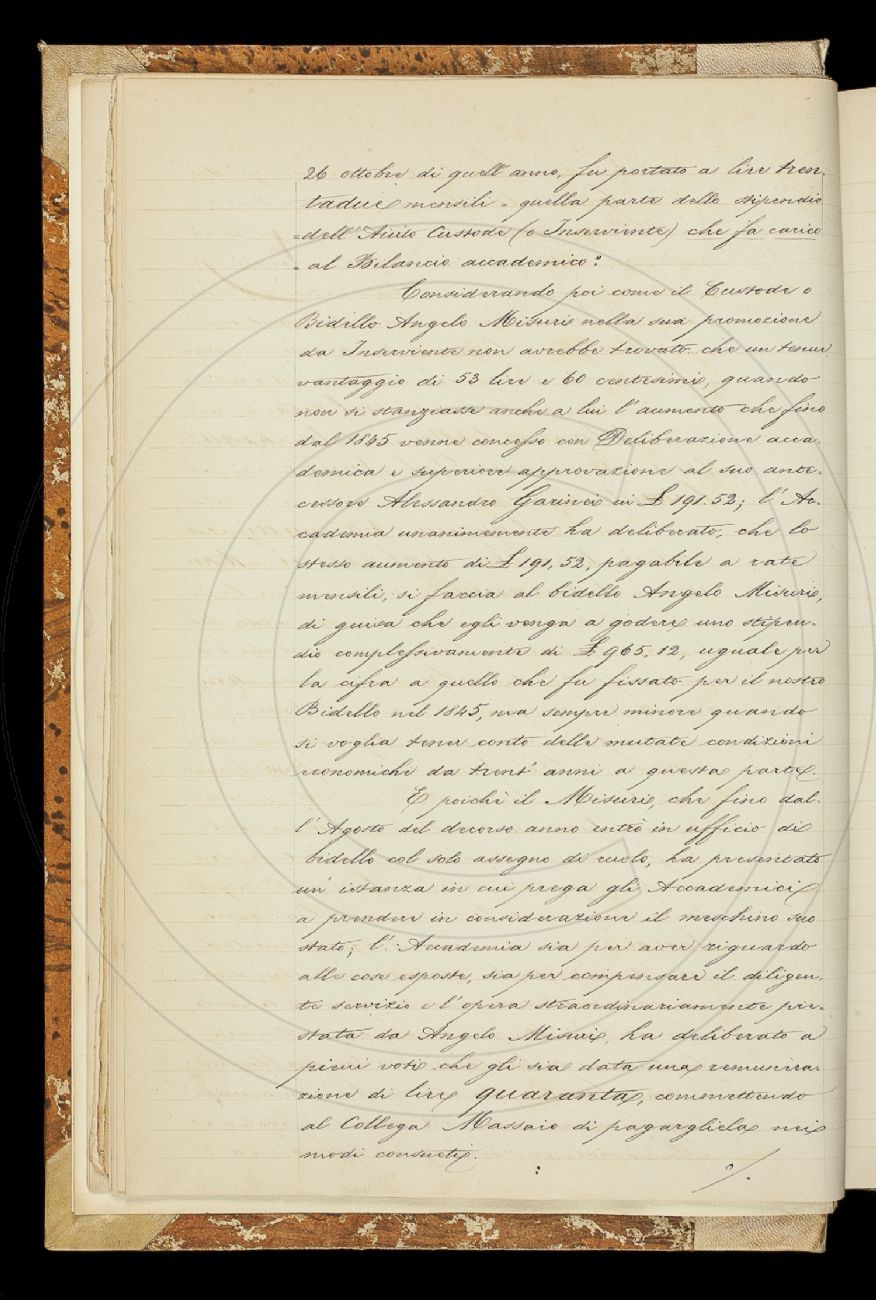 26 ottobre di quell'anno, fu portato a lire tren-
tadue mensili = quella parte dello stipendio
= dell'Aiuto Custode (o Inserviente) che fa carico
= al Bilancio accademico:"
Considerando poi come il Custode o
Bidello Angelo Misuri nella sua promozione
da Inserviente non avrebbe trovato che un tenue
vantaggio di 53 lire e 60 centesimi, quando
non si stanziasse anche a lui l'aumento che fino
dal 1845 venne concesso con Deliberazione acca-
demica e superiore approvazione al suo ante-
cessore Alessandro Garinei in £ 191.52; l'Ac-
cademia unanimemente ha deliberato, che lo
stesso aumento di £ 191,52, pagabile a rate
mensili, si faccia al bidello Angelo Misuri,
di guisa che egli venga a godere uno stipen-
dio complessivamente di £ 965,12, uguale per
la cifra a quello che fu fissato per il nostro
Bidello nel 1845, ma sempre minore quando
si voglia tener conto delle mutate condizioni
economiche da trent'anni a questa parte.
E poichè il Misuri, che fino dal-
l'Agosto del decorso anno entrò in ufficio di
bidello col solo assegno di ruolo, ha presentato
un'istanza in cui prega gli Accademici
a prendere in considerazione il meschino suo
stato; l'Accademia sia per aver riguardo
alle cose esposte, sia per compensare il diligen-
te servizio e l'opera straordinariamente pre-
stata da Angelo Misuri, ha deliberato a
pieni voti che gli sia data una remunera-
zione di lire quaranta, commettendo
al Collega Massaio di pagargliela nei
modi consueti.
./.